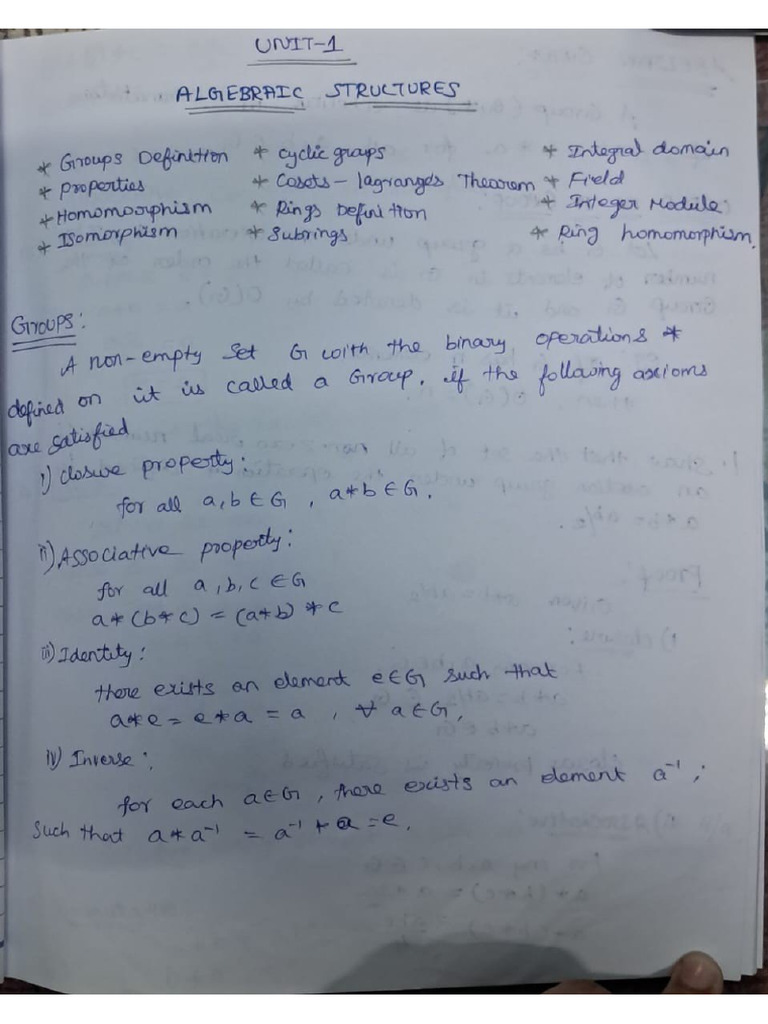 UNIT-1
ALGEBRAIC STRUCTURES
* Groups Definition * cyclic groups * Integral domain
* properties * Cosets - lagranges Theorem * Field
* Homomoorphism * Rings Definition * Integer Module
* Isomorphism * Subrings * Ring homomorphism.
Groups:
A non-empty set G with the binary operations *
defined on it is called a Group, if the following axioms
are satisfied
i) closure property:
for all a, b ∈ G , a*b ∈ G.
ii) Associative property:
for all a, b, c ∈ G
a*(b*c) = (a*b)*c
iii) Identity:
there exists an element e∈G such that
a*e = e*a = a , ∀ a∈G,
iv) Inverse:
for each a∈G, there exists an element a⁻¹;
such that a*a⁻¹ = a⁻¹*a = e.